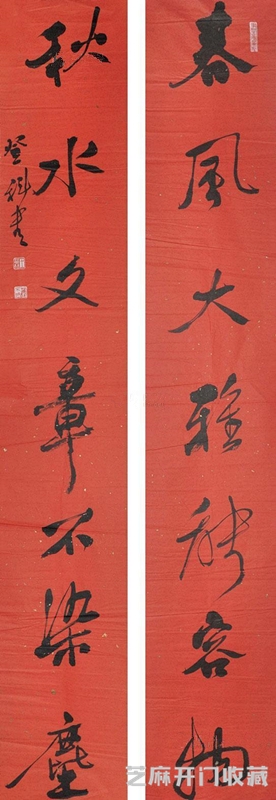 春風大雅能容物
秋水文章不染塵
登科書
艺麻开门收藏